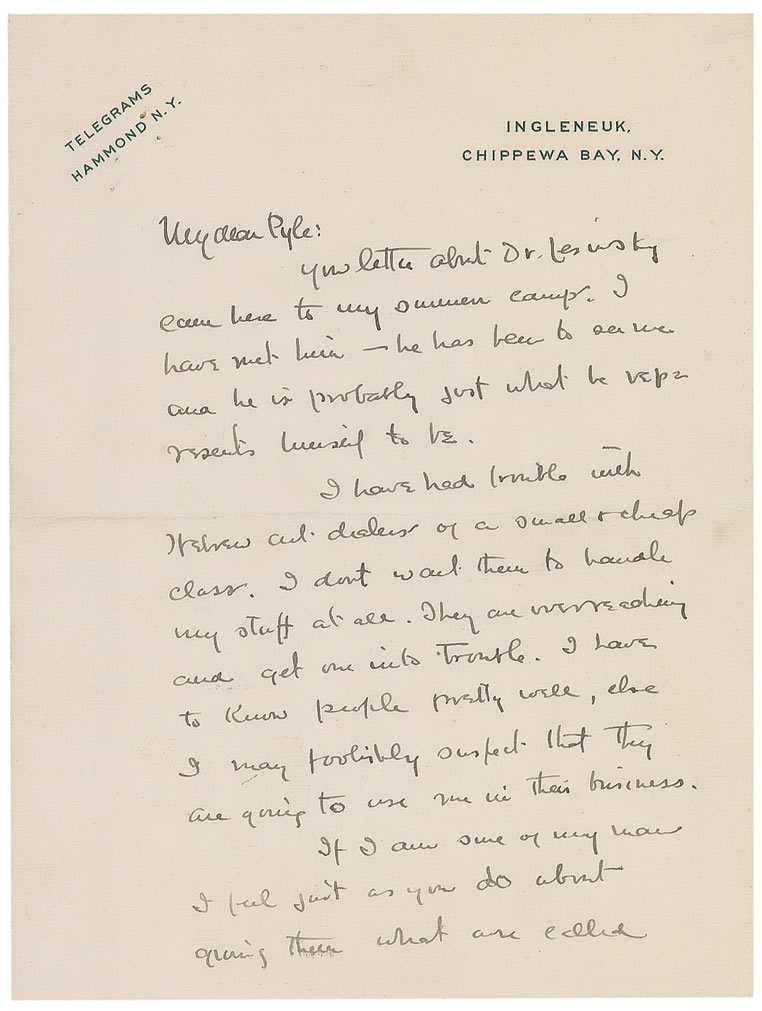 TELEGRAMS
HAMMOND N.Y.
INGLENEUK,
CHIPPEWA BAY, N.Y.
My dear Pyle:
your letter about Dr. Lesinsky
came here to my summer camp. I
have met him — he has been to see me
and he is probably just what he rep=
resents himself to be.
I have had trouble with
Hebrew art dealers of a small & cheap
class. I dont want them to handle
my stuff at all. They are overreaching
and get one into trouble. I have
to know people pretty well, else
I may foolishly suspect that they
are going to use me in their business.
If I am sure of my man
I feel just as you do about
giving them what are called